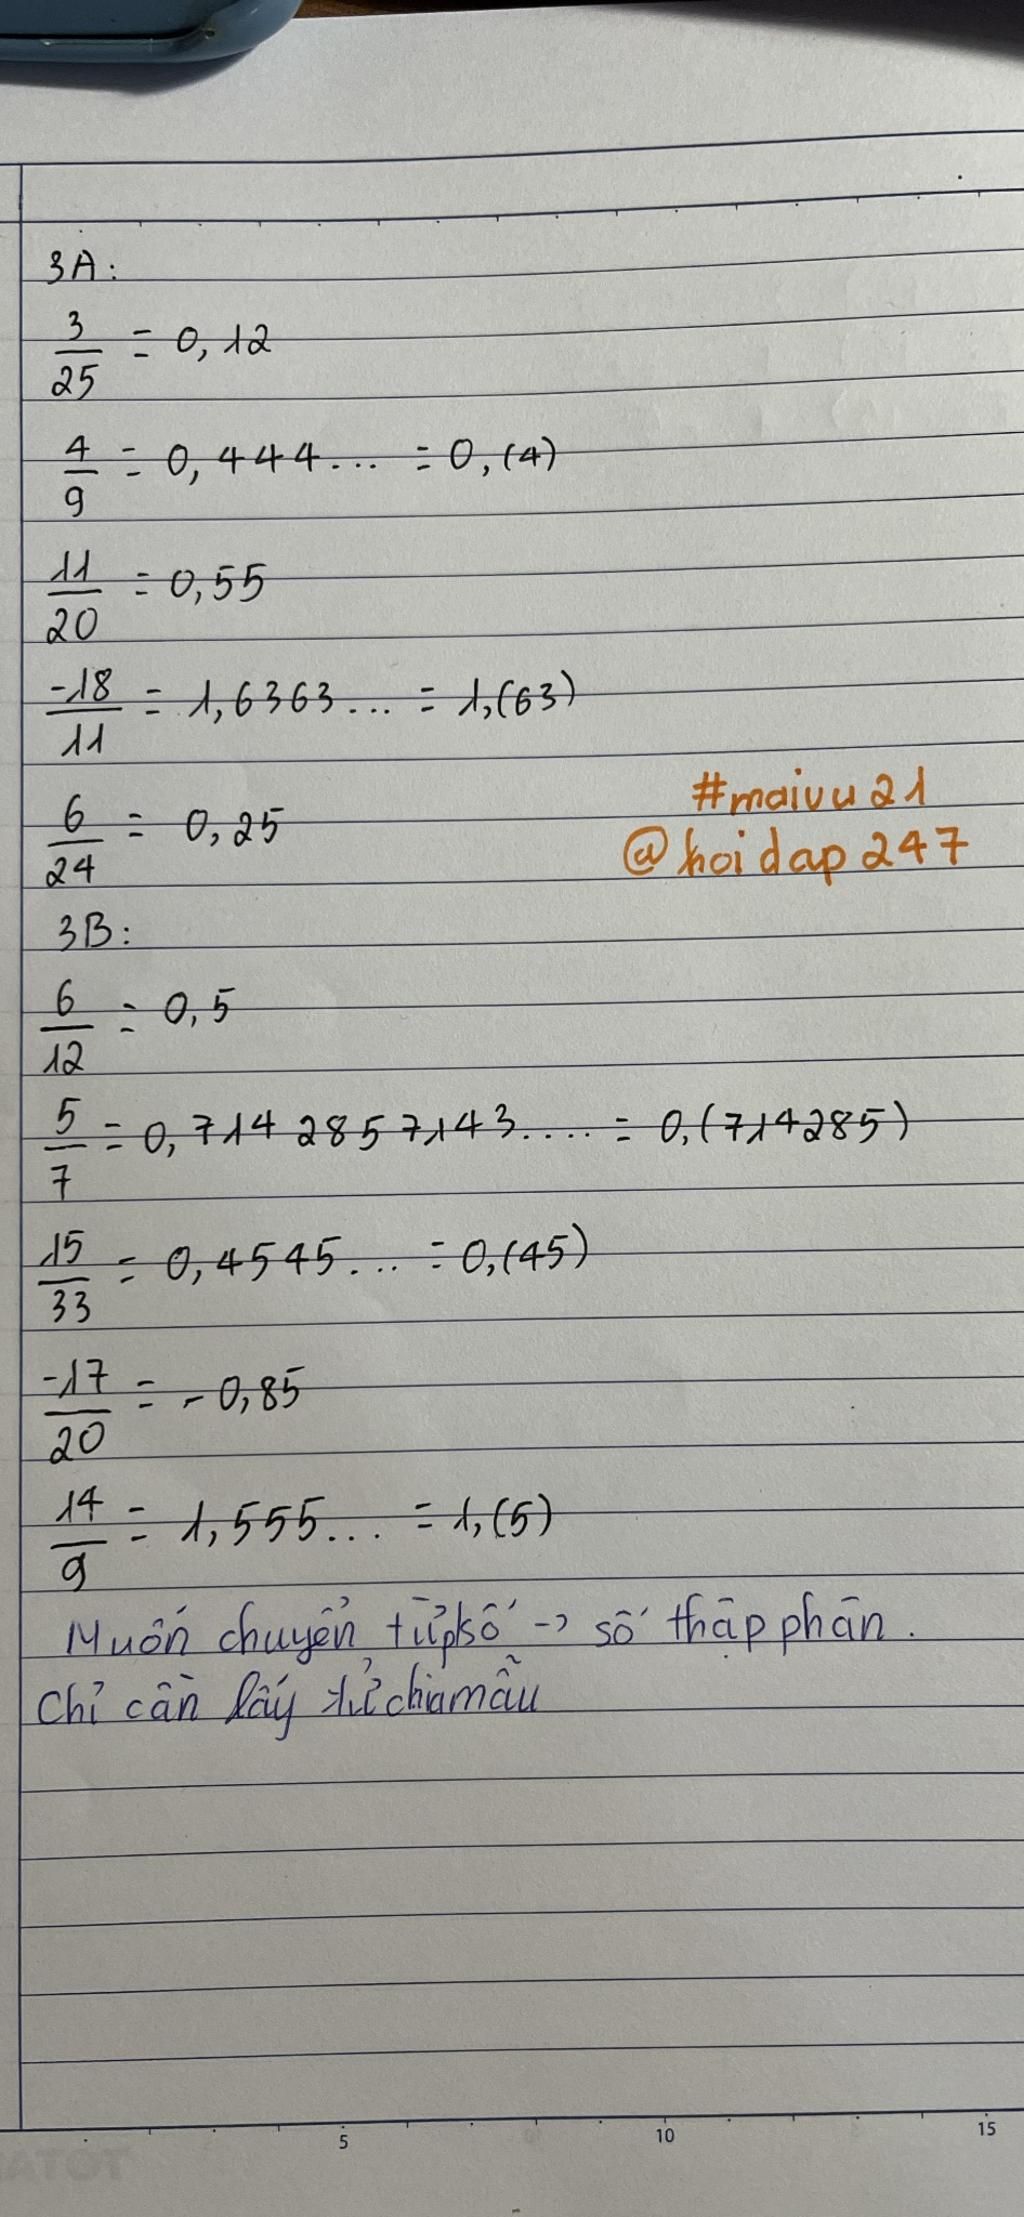 3A:
3/25 = 0,12
4/9 = 0,444... = 0,(4)
11/20 = 0,55
-18/11 = 1,6363... = 1,(63)
6/24 = 0,25
#maivu21
@hoidap247
3B:
6/12 = 0,5
5/7 = 0,7142857143.... = 0,(714285)
15/33 = 0,4545... = 0,(45)
-17/20 = -0,85
14/9 = 1,555... = 1,(5)
Muốn chuyển từ psố -> số thập phân.
Chỉ cần lấy tử chia mẫu
5 10 15